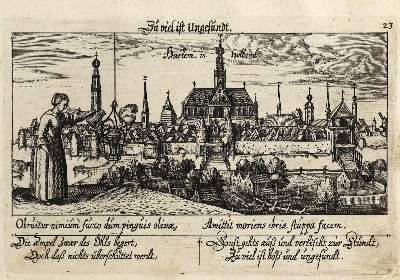 Zu viel ist Ungesundt.
23
Harlem. in Holland
Obruitur nimium succo dum pinguis olivæ,
Amittit moriens ebria stuppa facem.
Die Ampel zwar des Öhls begert,
Doch daß nichts überschüttet werdt,
Sonst gehts auß und verlischt zur Stundt,
Zu viel ist böß und ungesundt.